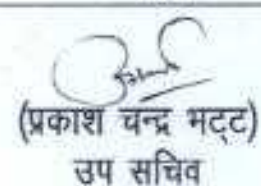 (प्रकाश चन्द्र भट्ट)
उप सचिव